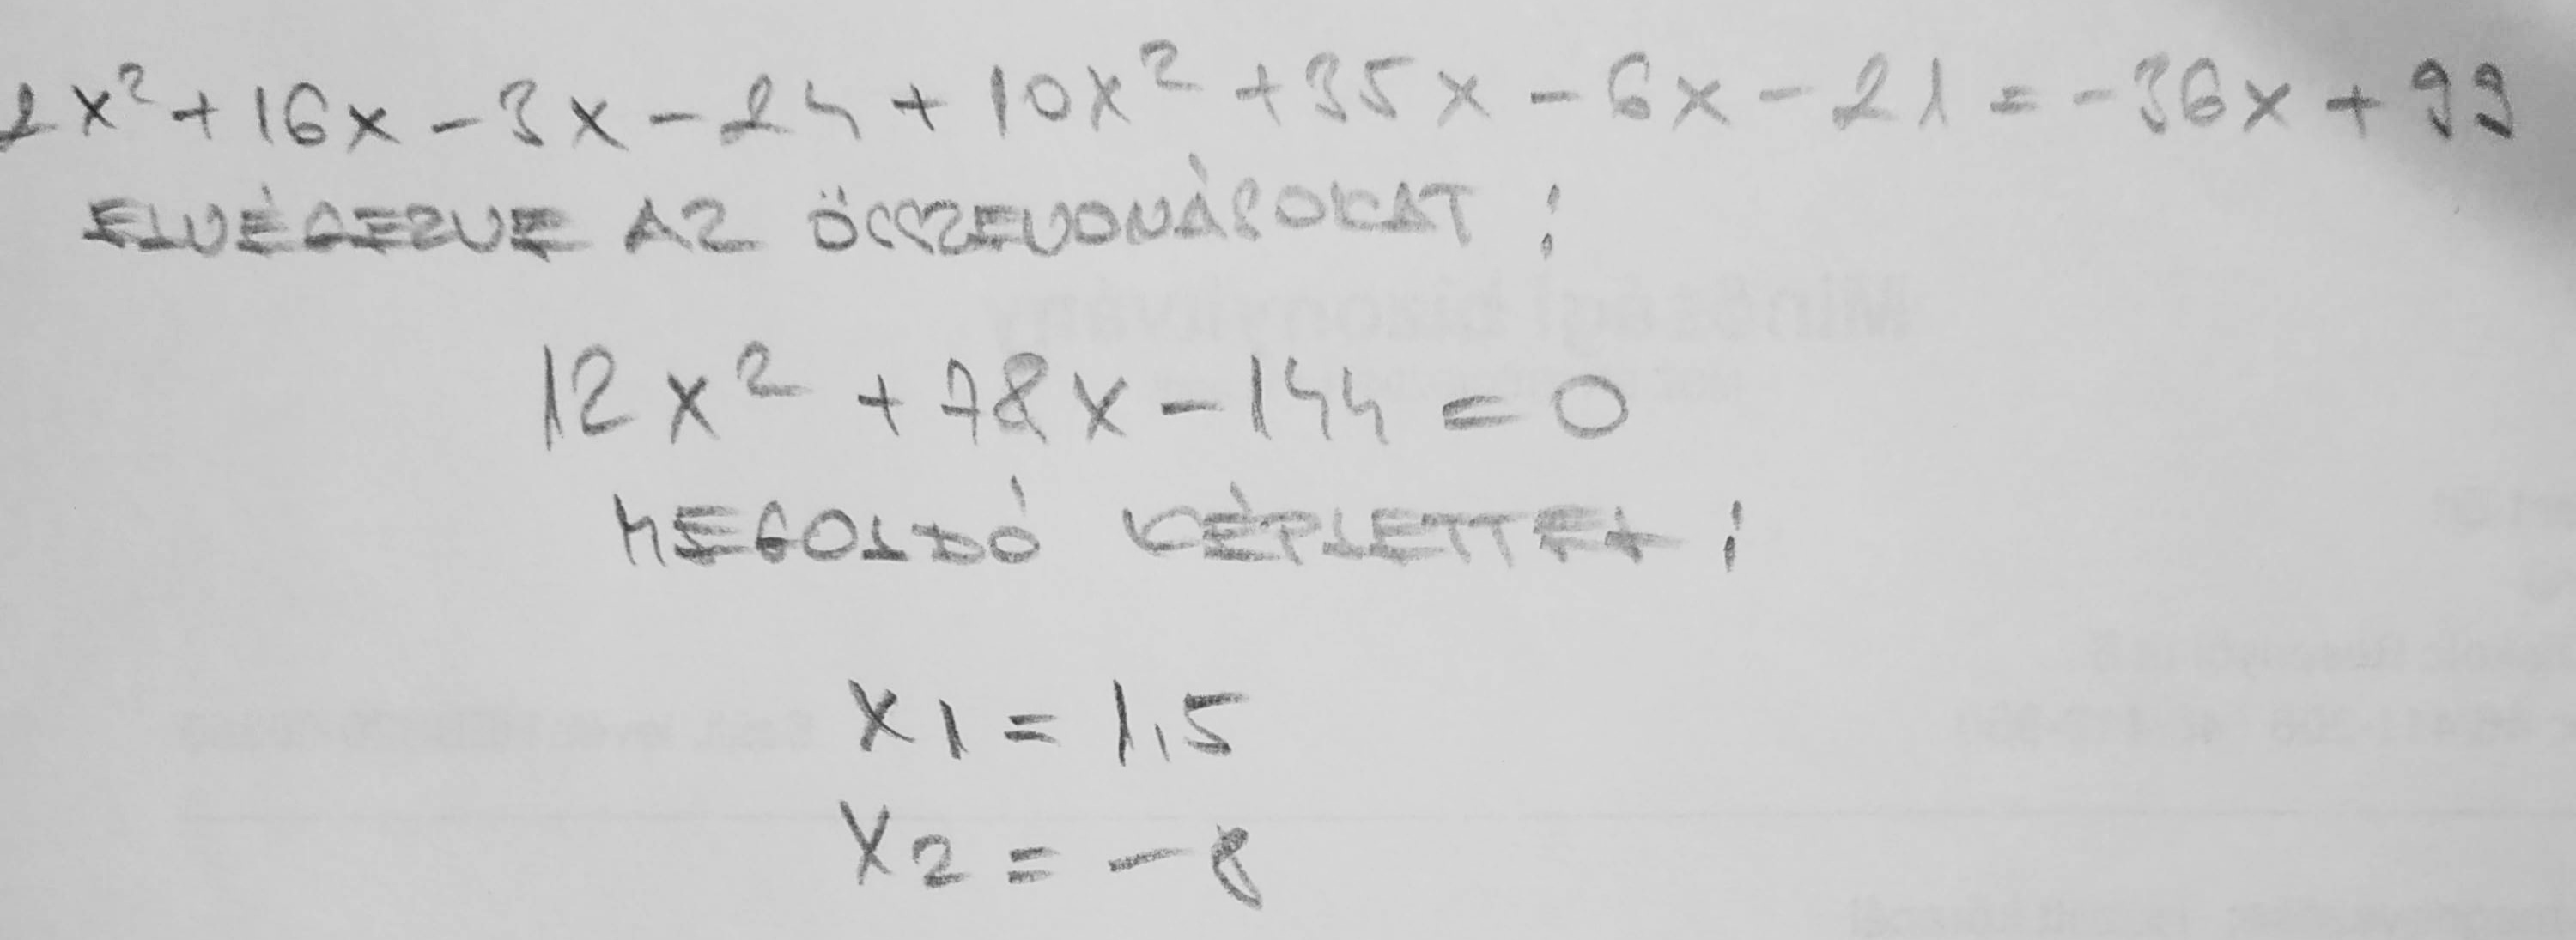 2x² + 16x - 3x - 24 + 10x² + 35x - 6x - 21 = -36x + 99
ELVÉGEZVE AZ ÖSSZEVONÁSOKAT:
Minőségi bizonyítvány
12x² + 78x - 144 = 0
MEGOLDÓ KÉPLETTEL:
x1 = 1,5
x2 = -8